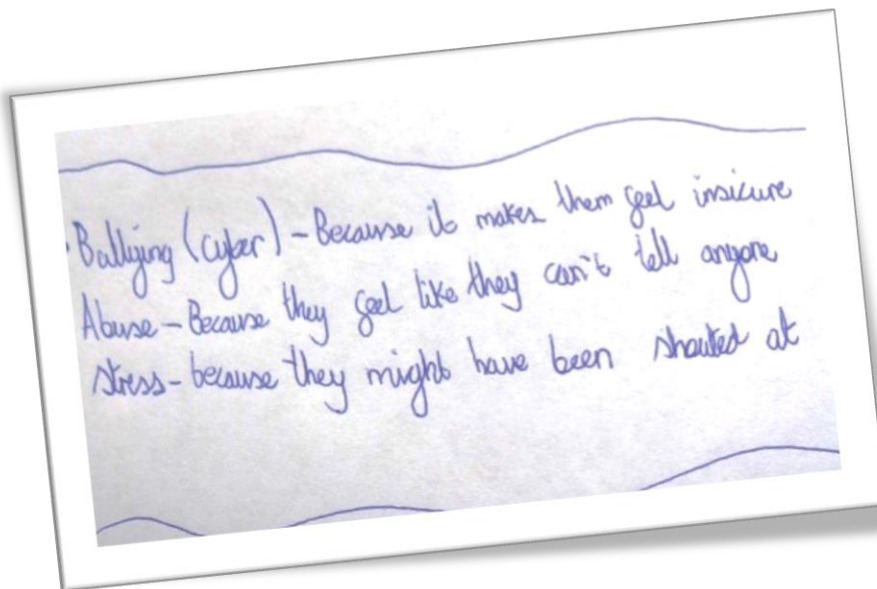 ·Bullying (cyber) - Because it makes them feel insicure
Abuse - Because they feel like they can't tell anyone
stress - because they might have been shouted at